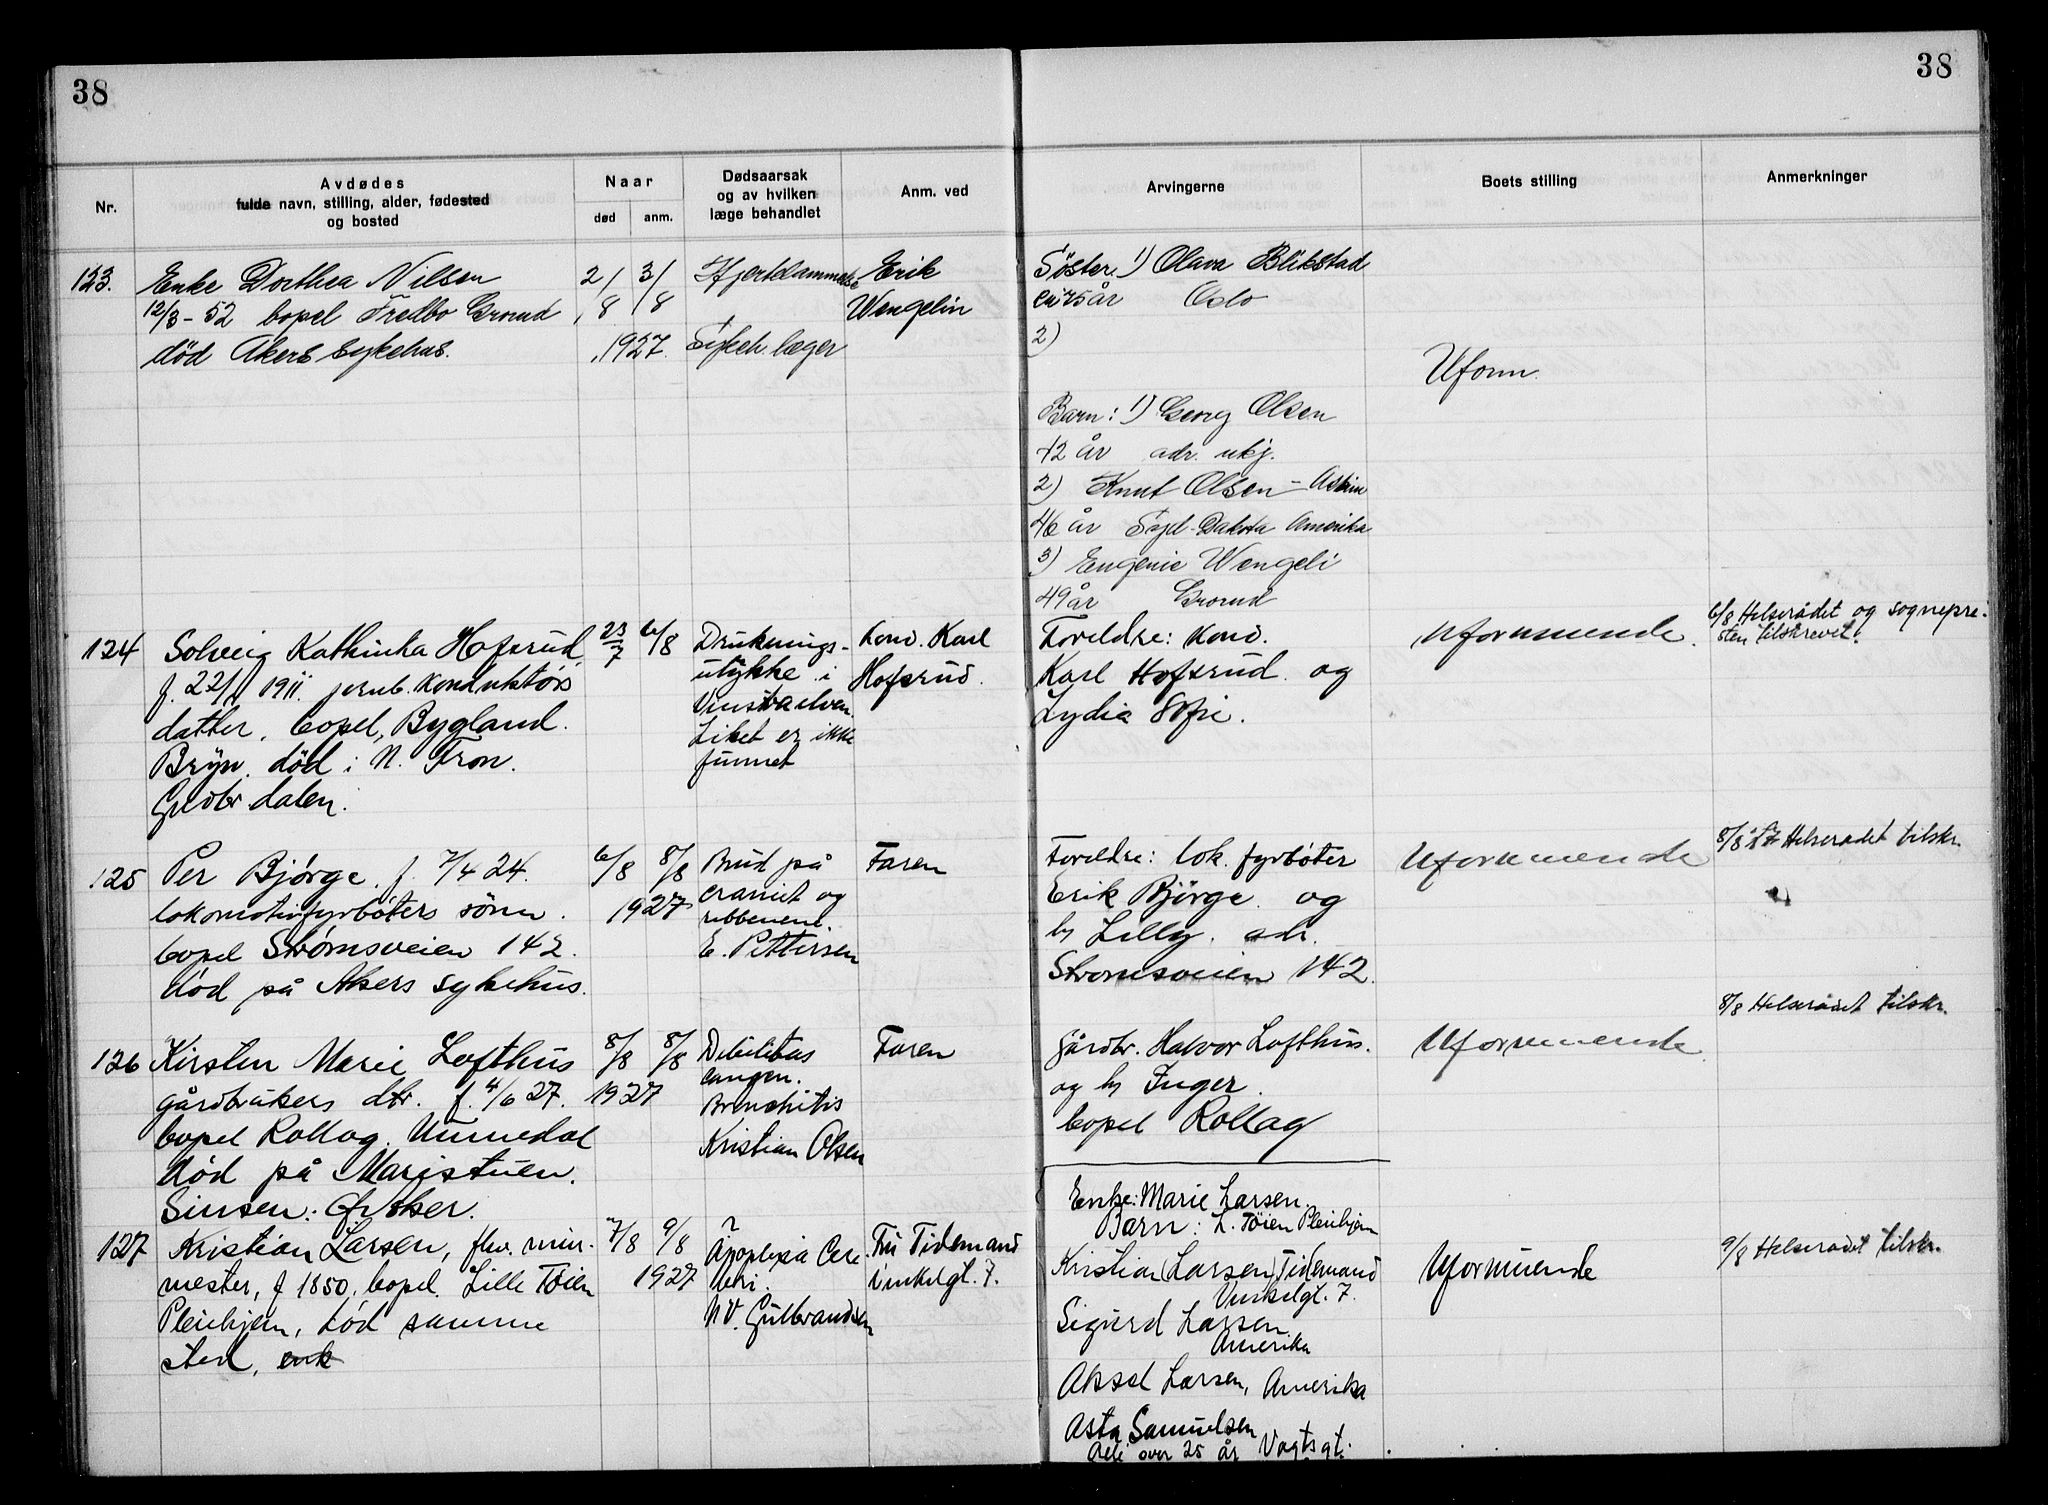 38
38
Nr.
Avdødes
fulde navn, stilling, alder, fødested
og bosted
Naar
død
anm.
Dødsaarsak
og av hvilken
læge behandlet
Anm. ved
Arvingerne
Boets stilling
Anmerkninger
123.
Enke Dorthea Nilsen
12/3 - 52 bopel Fredbo Grorud
død Akers sykehus.
2/8
3/8
1927.
Hjertelammelse
Sykeh. læger
Erik
Wengelin
Søster 1) Olava Blikstad
75 år Oslo
2)
Uform.
Barn: 1) Georg Olsen
42 år adr. ukj.
2) Knut Olsen - Askim
46 år Syd-Dakota Amerika
3) Eugenie Wengeli
49 år Grorud
124
Solveig Kathinka Hofsrud,
f. 22/11 1911. jernb. konduktørs
datter, bopel, Bygland.
Bryn. død i N. Fron.
Gudbr dalen.
23/7
6/8
Druknings-
ulykke i
Vinstraelven.
Liket er ikke
funnet
Kond. Karl
Hofsrud.
Foreldre: Kond.
Karl Hofsrud og
Lydia Sofie.
Uformuende.
6/8 Helserådet og sognepre-
sten tilskrevet.
125
Per Bjørge. f. 7/4 24.
lokomotivfyrbøters sønn.
bopel Strømsveien 142.
død på Akers sykehus.
6/8
8/8
1927
Brud på
craniet og
ribbenene.
E. Pettersen
Faren
Foreldre: lok. fyrbøter
Erik Bjørge. og
h Lilly. adr.
Strømsveien 142.
Uformuende
8/8 27 Helserådet tilskr.
126
Kirsten Marie Lofthus
gårdbrukers dtr. f. 4/6 27.
bopel Rollag. Numedal
død på Maristuen.
Sinsen: Ø. Aker.
8/8
8/8
1927
Debilitas
congen.
Bronchitis
Kristian Olsen
Faren
Gårdbr. Halvor Lofthus.
og h Inger.
bopel Rollag
Uformuende.
8/8 Helserådet tilskr.
127
Kristian Larsen, fhv. mur-
mester, f 1850, bopel. Lille Tøien
Pleiehjem, død samme
sted, enk
7/8
9/8
1927
Apoplexia Cere
bri.
N V. Gulbrandsen
Fru Tidemand
Vinkelgt. 7.
Enke: Marie Larsen.
Barn: L. Tøien Pleiehjem
Kristian (Larsen) Tidemand
Vinkelgt. 7.
Sigurd Larsen
Amerika
Aksel Larsen, Amerika
Asta Samuelsen
Alle over 25 år Vogtsgt.
Uformuende
9/8 Helserådet tilskr.